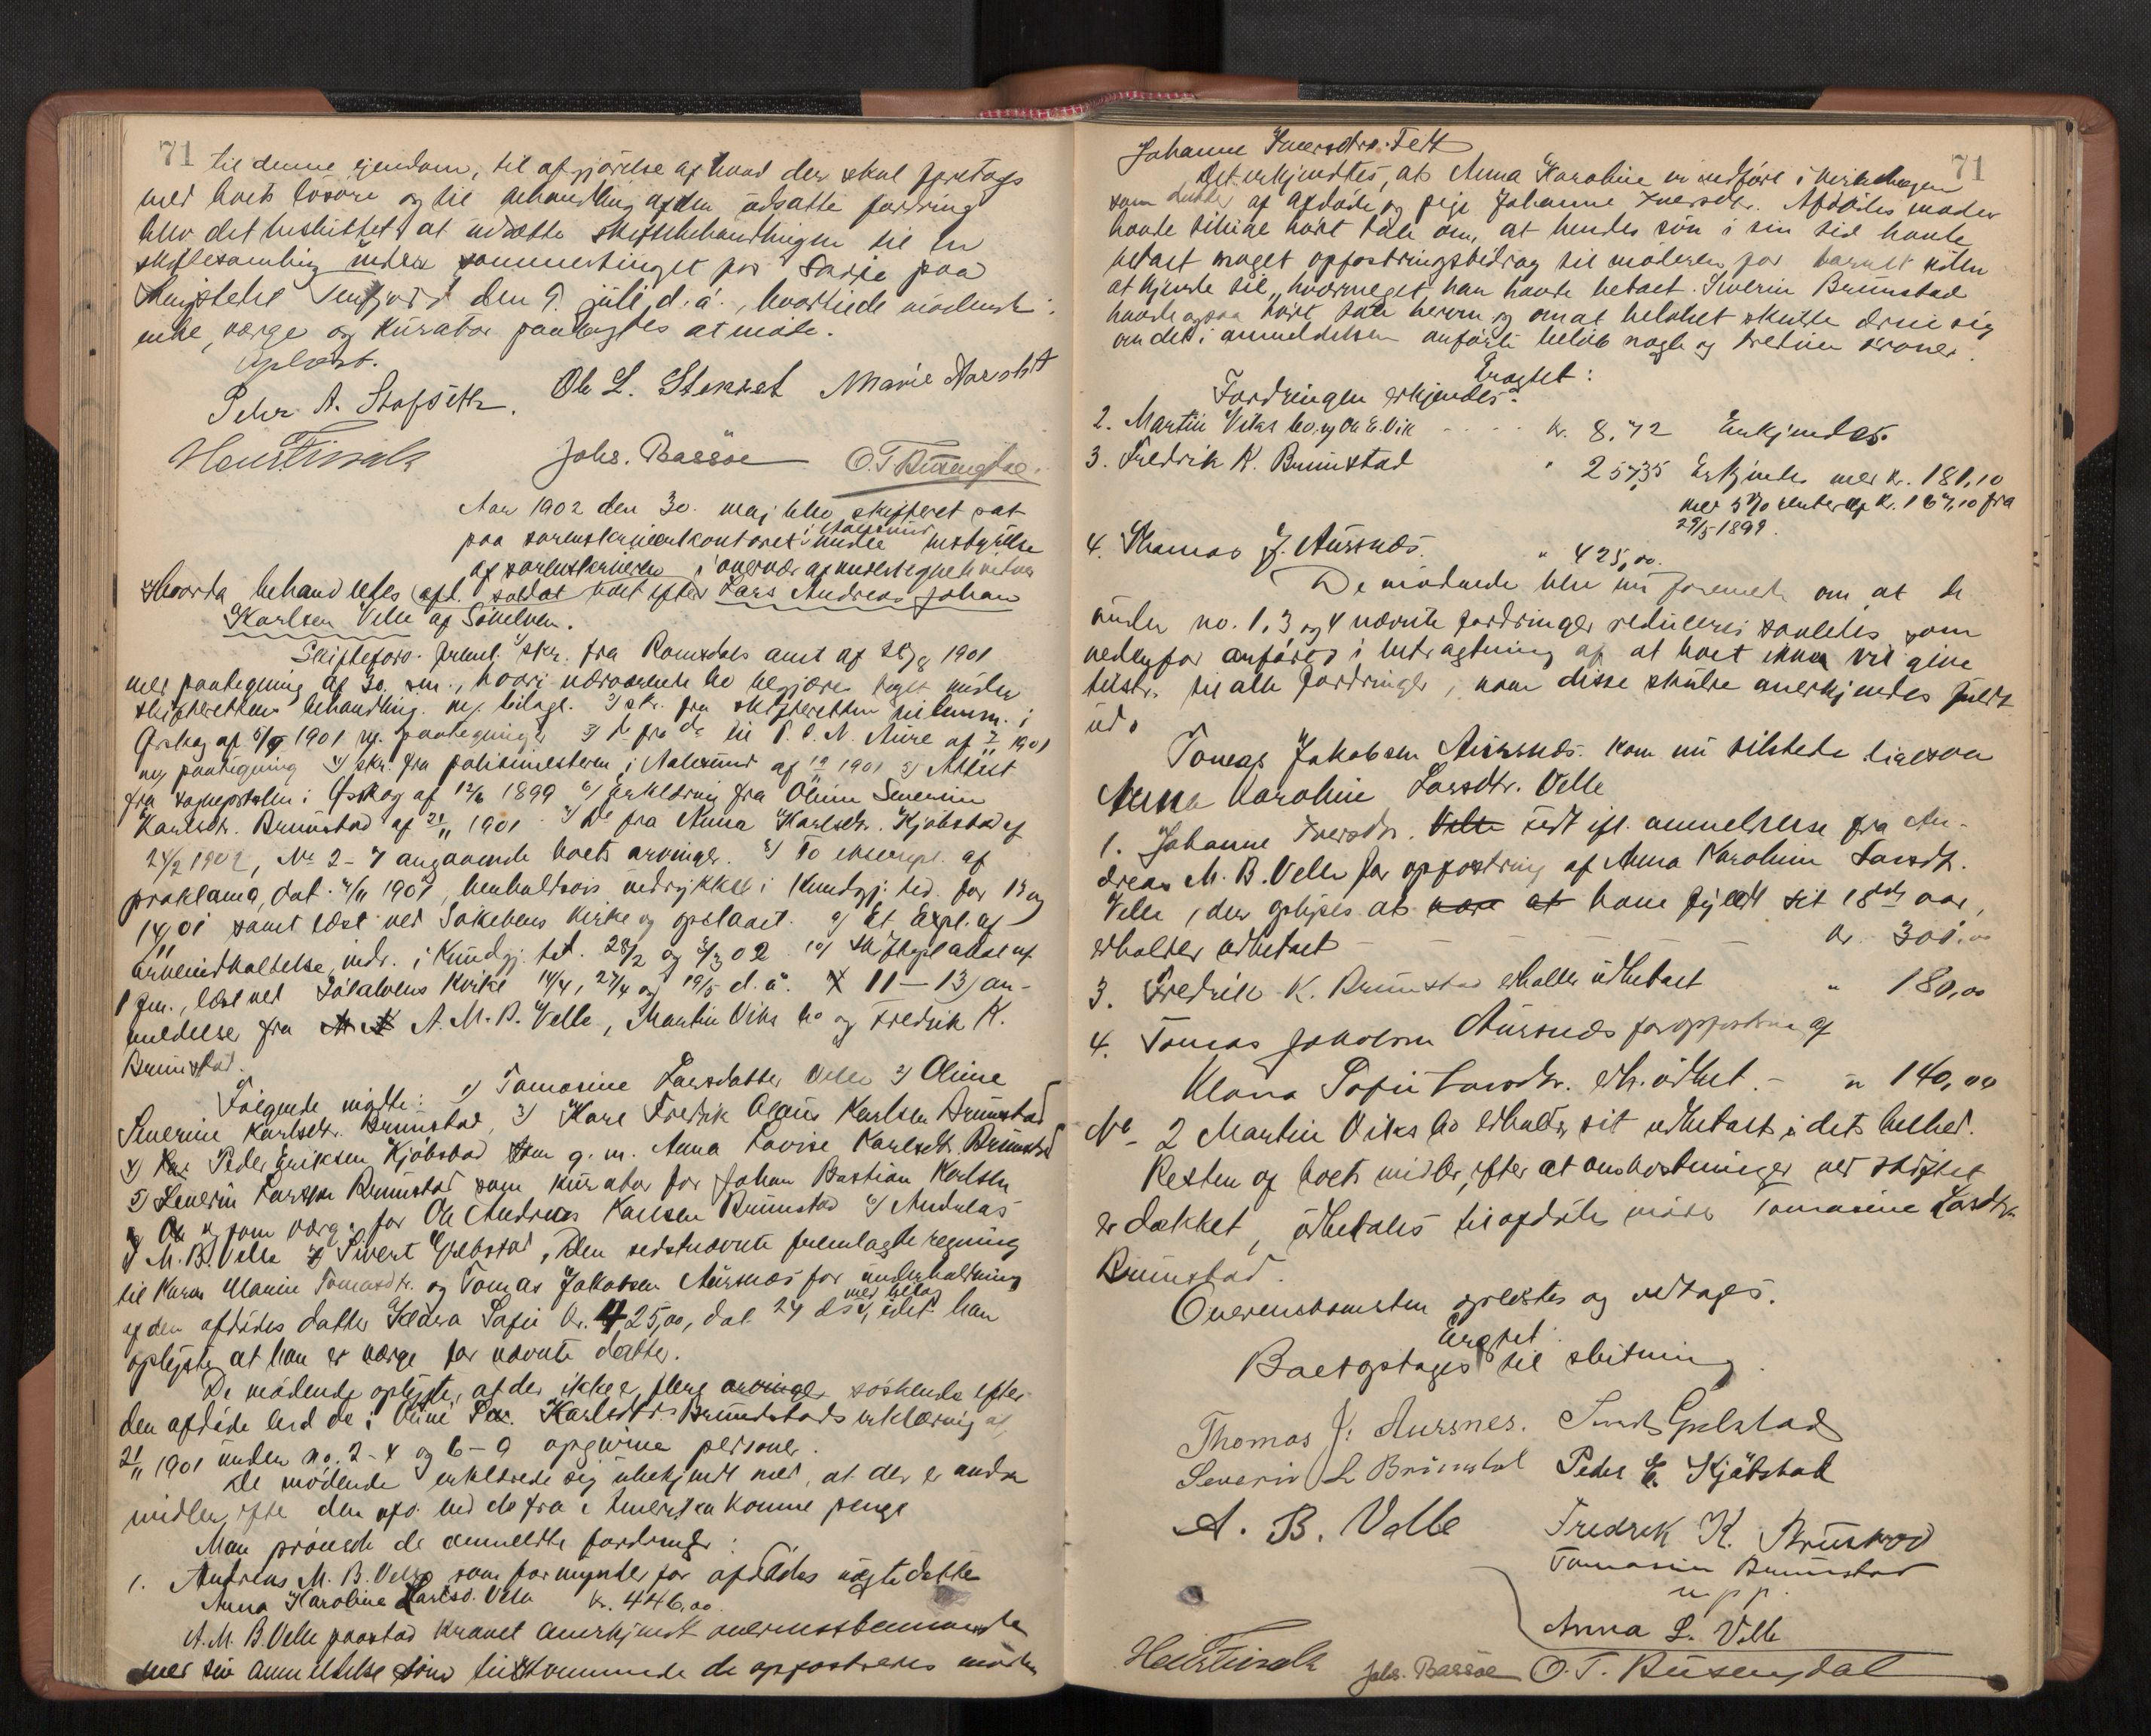 71
til denne ejendom, til afgjörelse af hvad der skal foretages
med boets lösöre og til behandling af den udsatte fordring
blev det besluttet at udsætte skiftebehandlingen til en
skiftesamling under sommertinget for paa
den 9. juli d. a., hvortil de mödende:
enke, værge og kurator paalagdes at möte.
Oplæst.
Pehr A. Stafseth. Ole L. Stokset Marie
Johs. Bassöe O. T. Rusengdal.
Aar 1902 den 30. maj blev skifteret sat
paa sorenskriverkontoret i Aalesund under bestyrelse
af sorenskriveren i overvær af undertegnede vidner
Hvorda behandledes afd. soldat boet efter Lars Andreas Johan
Karlsen Velle af Sökelven.
Skifteforv. freml. 1/ skr. fra Romsdals amt af 28/8 1901
med paategning af 30. s.m., hvori nærværende bo begjæres taget under
skifterettens behandling m. bilage. 2/ skr. fra skifteretten til lensm. i
Ørskog af 5/9 1901 m. paategning 3/ do fra do til P. C. N. Aure af 1901
m. paategning 4/ skr. fra politimesteren i Aalesund af 19/11 1901 5/ Attest
fra sogneprsten i Ørskog af 12/6 1899 6/ Erklæring fra Oline Severine
Karlsdr. Brunstad af 21/11 1901 7/ Do fra Anna Karlsdr. Kjöbstad af
24/2 1902, No 2-7 angaaende boets arvinger. 8/ To eksempl. af
proklama, dat. 4/11 1901, henholdsvis indrykket i Kundgj. tid. for 13 og
14/11 01 samt læst ved Sökelvens kirke og opslaaet. 9/ Et Expl. af
arveindkaldelse indr. i Kundgj. tid. 28/2 og 5/3 02 10/ Skifteplakat af
1 fm., læst ved Sökelvens kirke 14/4, 27/4 og 19/5 d. a. 11-13/ an-
meldelser fra A. M. B. Velle, Martin Viks bo og Fredrik K.
Brunstad.
Følgende mödte: 1/ Tomasine Larsdatter Velle 2/ Oline
Severine Karlsdtr. Brunstad, 3/ Karl Fredrik Olaus Karlsen Brunstad
4/ Peder Eriksen Kjöbstad g. m. Anna Lovise Karlsdtr. Brunstad
5/ Severin Larsen Brunstad som kurator for Johan Bastian Karlsen
og som værge for Ole Andreas Karlsen Brunstad 6/ Andreas
M. B. Velle 7/ Sivert Gjelstad, Den sidstnævnte fremlagde regning
til Karen Marie Tomasdr. og Tomas Jakobsen Aursnæs for underholdning
af den afdödes datter Klara Sofie Kr. 425,00, dat 24 ds. med bilag, idet han
oplyste at han er værge for nævnte datter.
De mödende oplyste, at der ikke er flere arvinger söskende efter
den afdöde end de i Oline Sev. Karlsdtr. Brunstads erklæring af
21/11 1901 under no. 2-4 og 6-9 opgivne personer.
De mödende erklærede sig ubekjendt med, at der er andre
midler efter den afd. end de fra Amerika komne penge
Man prövede de anmeldte fordringer:
1. Andreas M. B. Velle som formynder for afdödes uægte datter
Anna Karoline Larsd. Velle kr. 446,00.
A. M. B. Velle paastod kravet anerkjendt overensstemmende
med sin anmeldelse som tilkommende de opfostredes moder
71
Johanne Iversdtr. Fett
Det erkjendtes, at Anna Karoline er indført i kirkebogen
som datter af afdöde og pige Johanne Iversdr. Afdödes moder
havde tillige hört tale om, at hendes sön i sin tid havde
betalt noget opfostringsbidrag til moderen for barnet uden
at kjende til, hvormeget han havde betalt. Severin Brunstad
havde ogsaa hört tale herom og om at belöbet skulde dreie sig
om det i anmeldelsen anførte beløb nogle og tretime kroner.
Eragtet:
Fordringen erkjendes.
2. Martin Viks bo. v/ Ole E. Vik - - - - kr. 8,72 Erkjendes.
3. Fredrik K. Brunstad " 257,35 Erkjendes med kr. 181,10
med 5% renter af kr. 167,10 fra
29/5 1899.
4. Thomas J. Aursnæs. " 425,00.
De mödende blev nu forenede om, at de
under no. 1, 3 og 4 nævnte fordringer reduceres saaledes som
nedenfor anføres i betragtning af at boet ikke vil give
tilstr. til alle fordringer, naar disse skulde anerkjendes fuldt
ud.
Tomas Jakobsen Aursnæs kom nu tilstede ligesaa
Anna Karoline Larsdtr. Velle
1. Johanne Iversdtr. Velle Fett ifl. anmeldelse fra An-
dreas M. B. Velle for opfostring af Anna Karoline Larsdtr.
Velle, der oplyses at være at have fyldt sit 18de aar,
erholder udbetalt - - - kr. 300.00
3. Fredrik K. Brunstad erholder udbetalt " 180,00
4. Tomas Jakobsen Aursnæs for opfostring af
Klara Sofie Larsdr. erh. udbet. - " 140,00
No 2 Martin Viks bo erholder sit udbetalt i dets helhed.
Resten af boets midler, efter at omkostninger ved skiftet
er dækket, udbetales til afdödes mor Tomasine Larsdtr.
Brunstad.
Overenskomsten oplæstes og vedtoges.
Eragtet:
Boet optages til slutning.
Thomas J. Aursnes. Sivert Gjelstad
Severin L Brunstad Peder E. Kjöbstad
A. B. Velle Fredrek K. Brunstad
Tomasine Brunstad
m. p. p.
Anna L. Velle
Johs. Bassöe O. T. Rusengdal